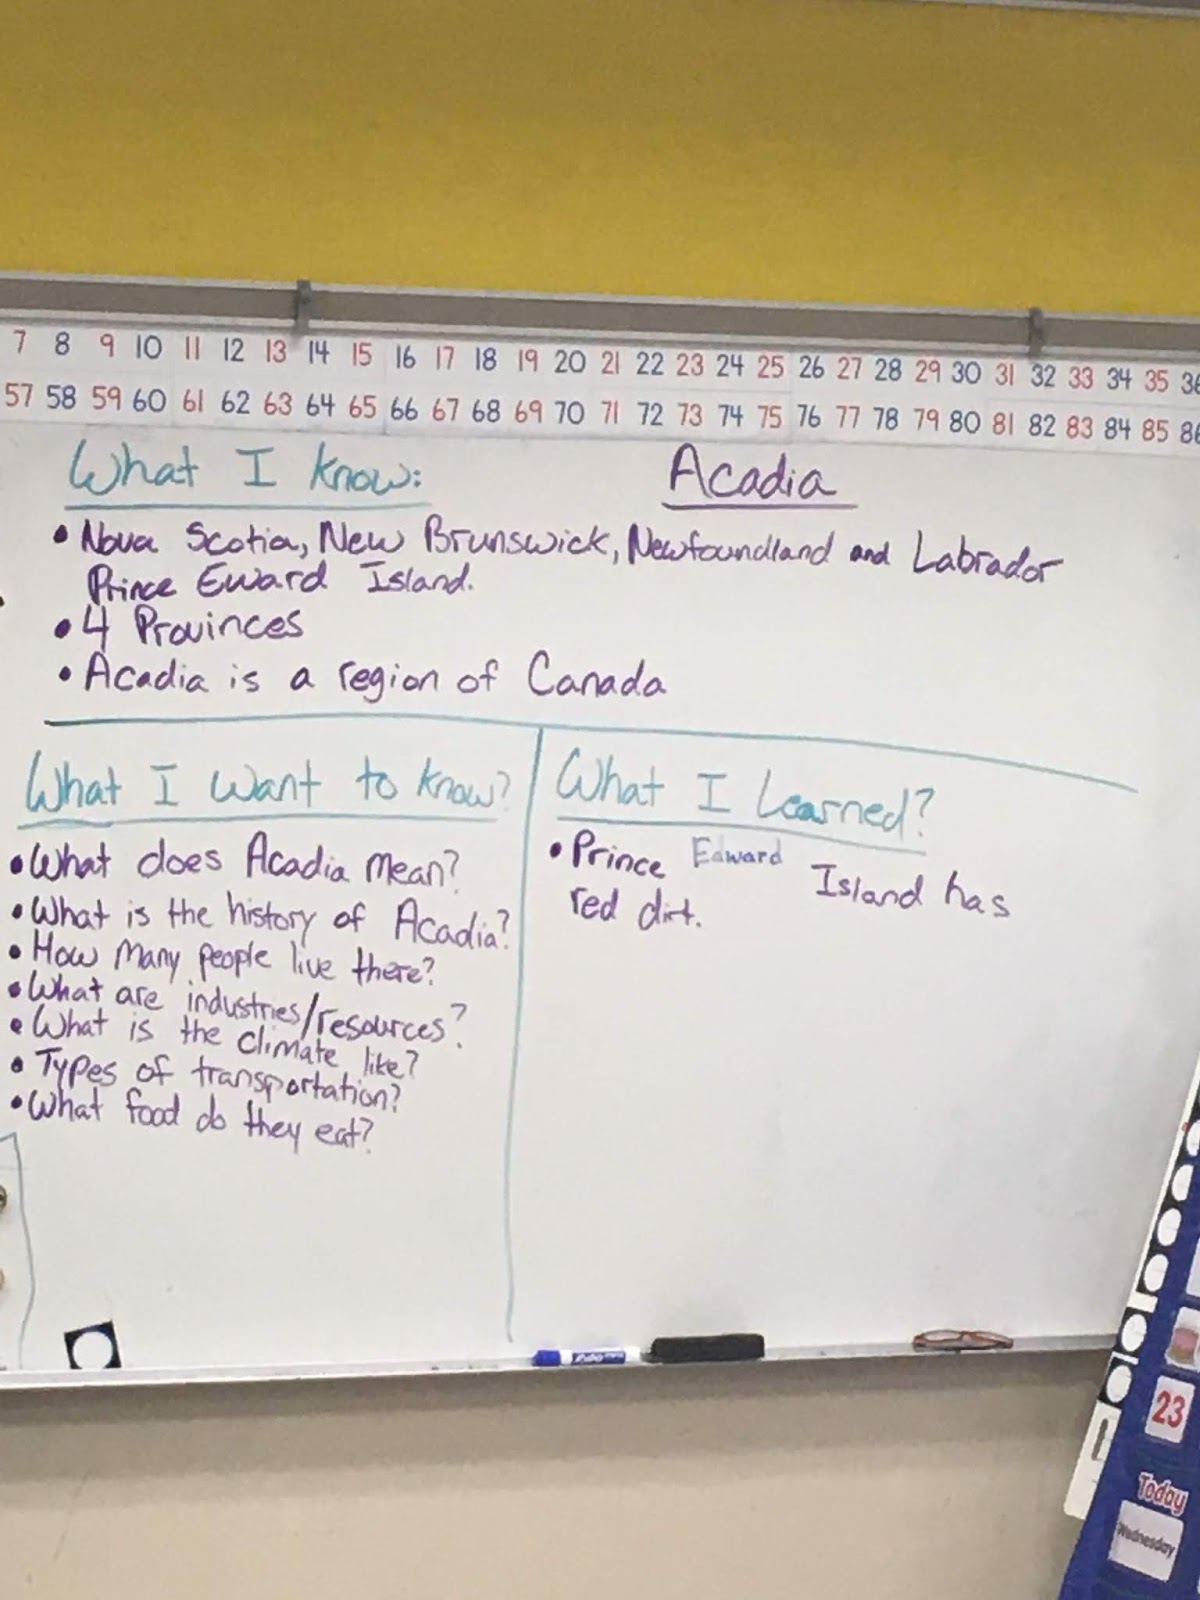 7 8 9 10 11 12 13 14 15 16 17 18 19 20 21 22 23 24 25 26 27 28 29 30 31 32 33 34 35 36
57 58 59 60 61 62 63 64 65 66 67 68 69 70 71 72 73 74 75 76 77 78 79 80 81 82 83 84 85 86
What I know:
Acadia
• Nova Scotia, New Brunswick, Newfoundland and Labrador
Prince Eward Island.
• 4 Provinces
• Acadia is a region of Canada
What I want to know?
• What does Acadia mean?
• What is the history of Acadia?
• How many people live there?
• What are industries/resources?
• What is the climate like?
• Types of transportation?
• What food do they eat?
What I Learned?
• Prince Edward Island has
red dirt.
EXPO
23
Today
Wednesday